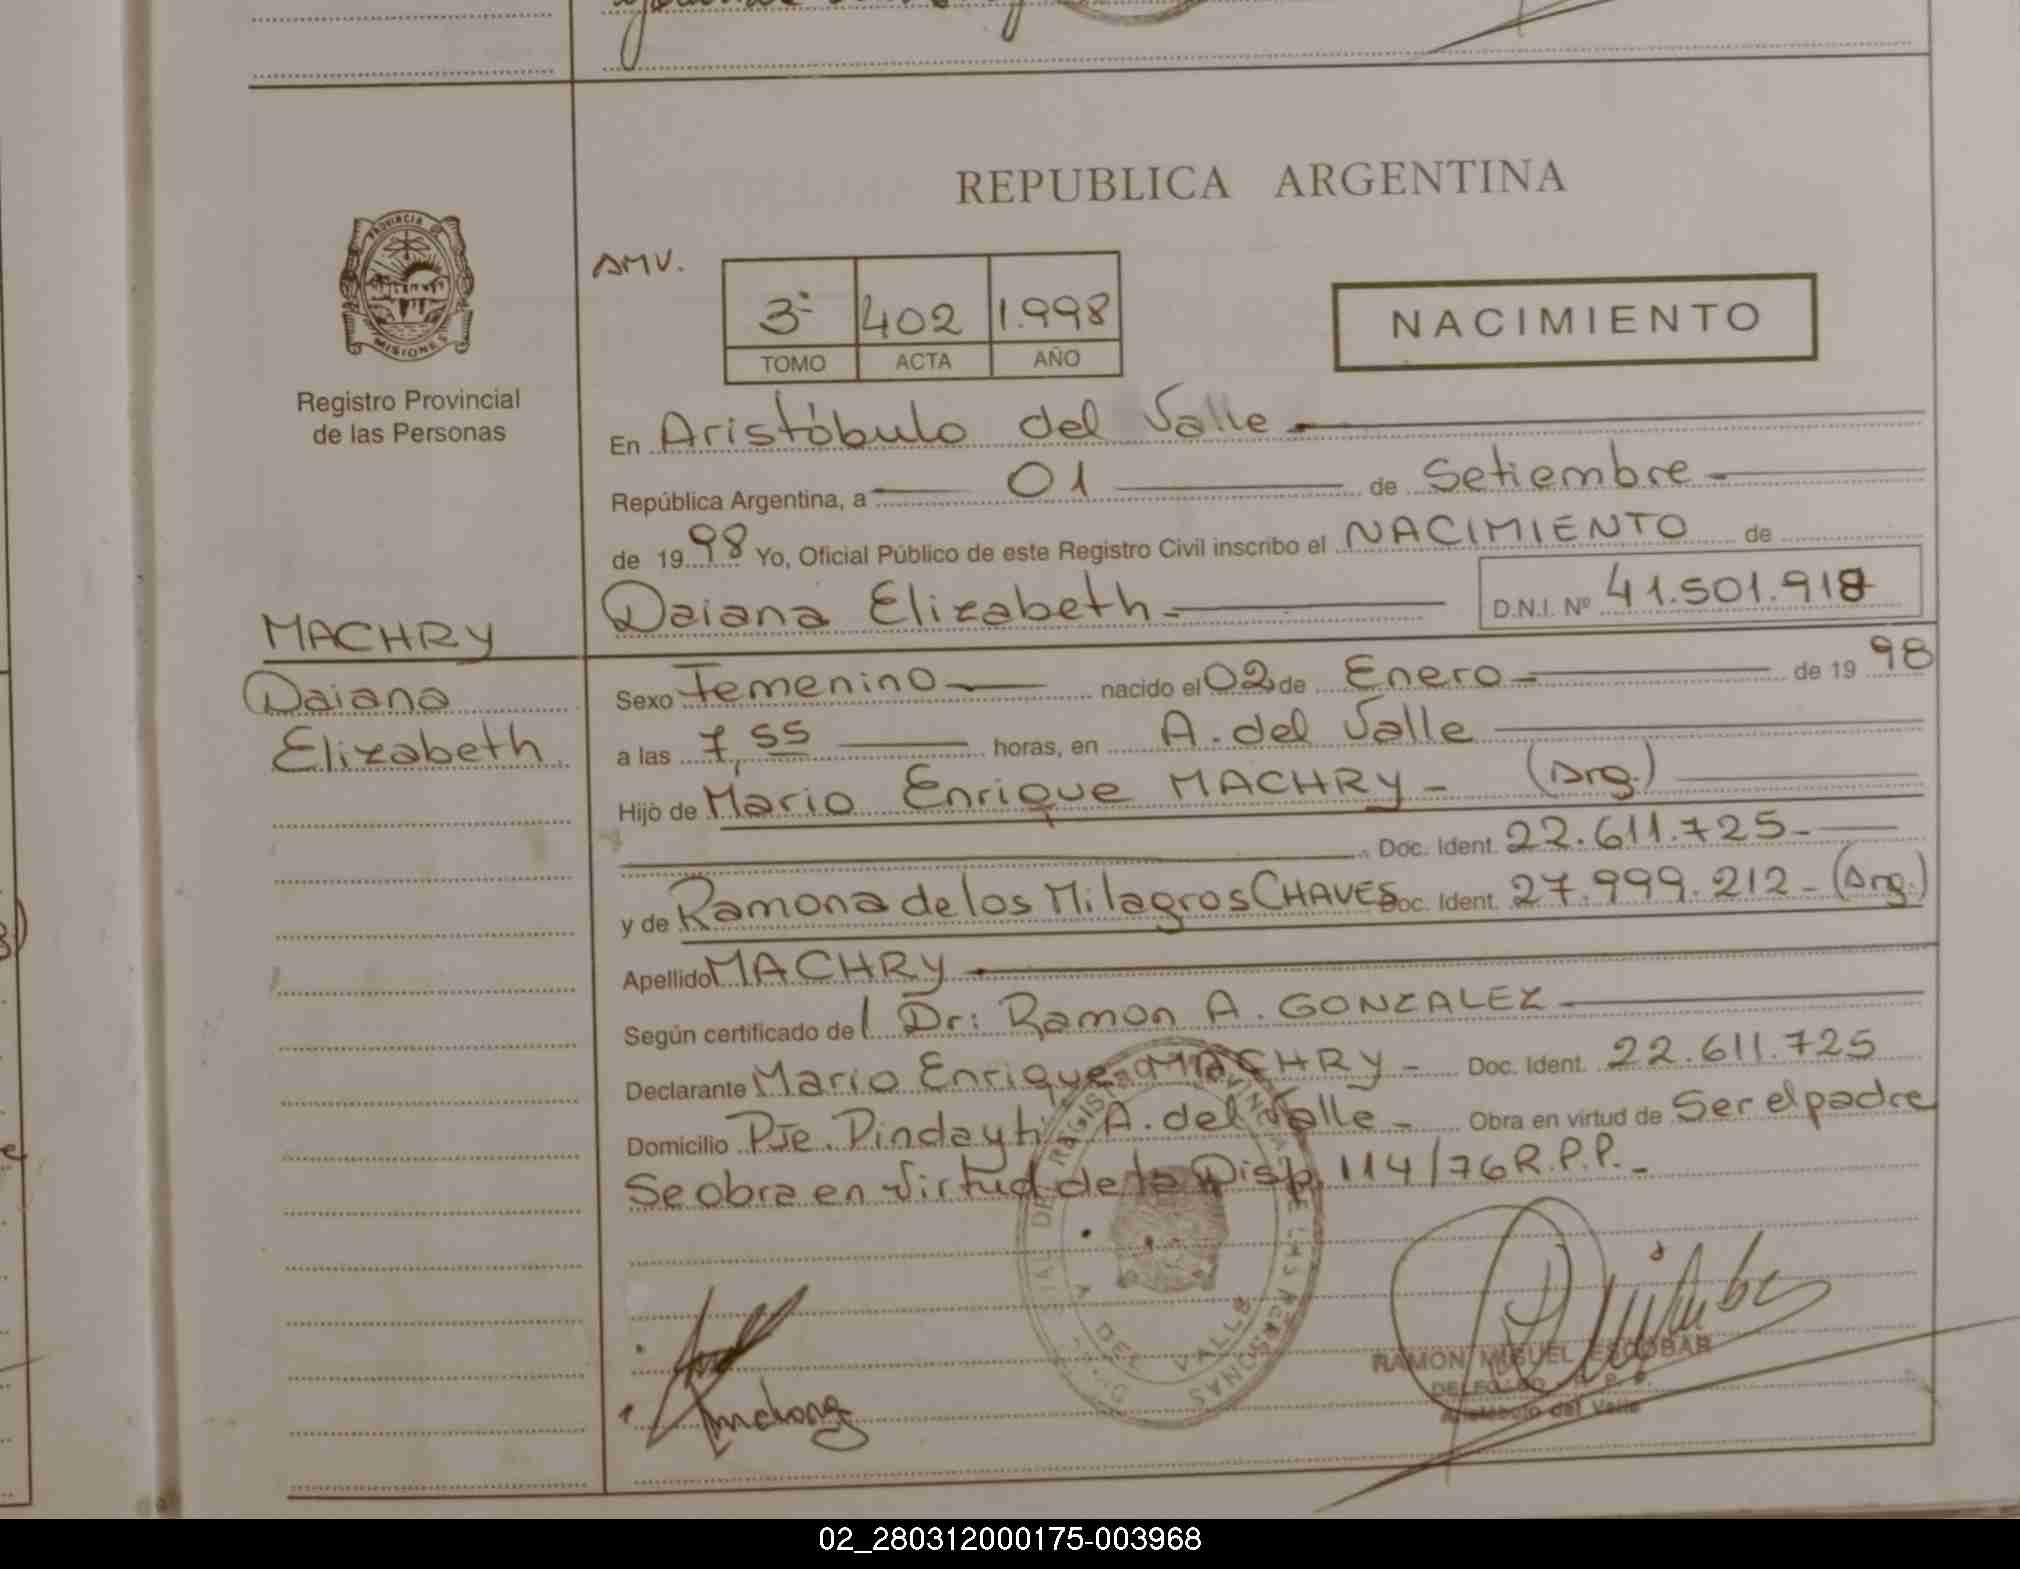 REPUBLICA ARGENTINA
PROVINCIA DE
MISIONES
Registro Provincial
de las Personas
AMV.
3º 402 1.998
TOMO ACTA AÑO
NACIMIENTO
En Aristóbulo del Valle
República Argentina, a 01 de Setiembre
de 1998 Yo, Oficial Público de este Registro Civil inscribo el NACIMIENTO de
Daiana Elizabeth D.N.I. Nº 41.501.918
MACHRY
Daiana
Elizabeth
Sexo Femenino nacido el 02 de Enero de 1998
a las 7,55 horas, en A. del Valle
Hijo de Mario Enrique MACHRY - (Arg.)
Doc. Ident. 22.611.725-
y de Ramona de los Milagros CHAVES Doc. Ident. 27.999.212- (Arg.)
Apellido MACHRY
Según certificado de l Dr: Ramon A. GONZALEZ
Declarante Mario Enrique MACHRY - Doc. Ident. 22.611.725
Domicilio Pje. Pindayti A. del Valle - Obra en virtud de Ser el padre
Se obra en virtud de la Disp. 114/76 R.P.P.-
DE LAS PERSONAS
DEL VALLE
RAMON MIGUEL ESCOBAR
Aristóbulo del Valle
02_280312000175-003968